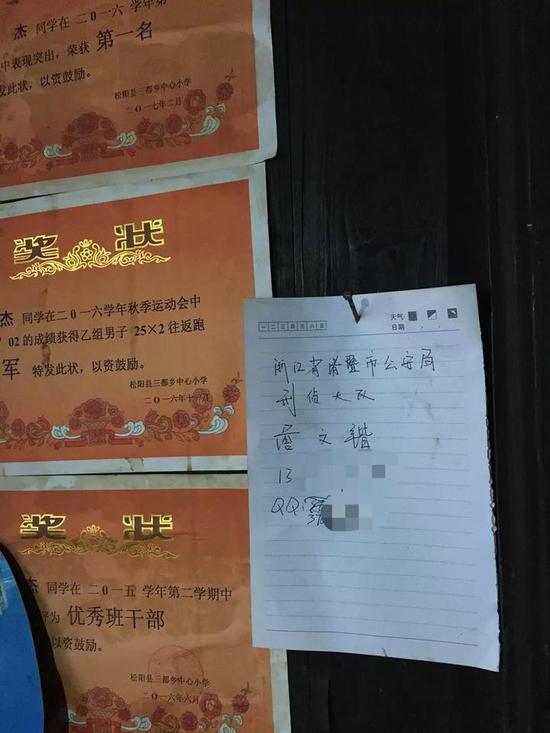 杰 同学在二0一六 学年第
中表现突出，荣获 第一名
发此状，以资鼓励。
松阳县三都乡中心小学
二0一七年二月
奖 状
杰 同学在二0一六学年秋季运动会中
02 的成绩获得乙组男子 25×2 往返跑
军 特发此状，以资鼓励。
松阳县三都乡中心小学
二0一六年十一月
奖 状
杰 同学在 二0一五 学年第二学期中
评为 优秀班干部
以资鼓励。
松阳县三都乡中心小学
二0一六年六月
一 二 三 四 五 六 日
天气
日期
浙江省诸暨市公安局
刑侦大队
文锴
13
QQ: